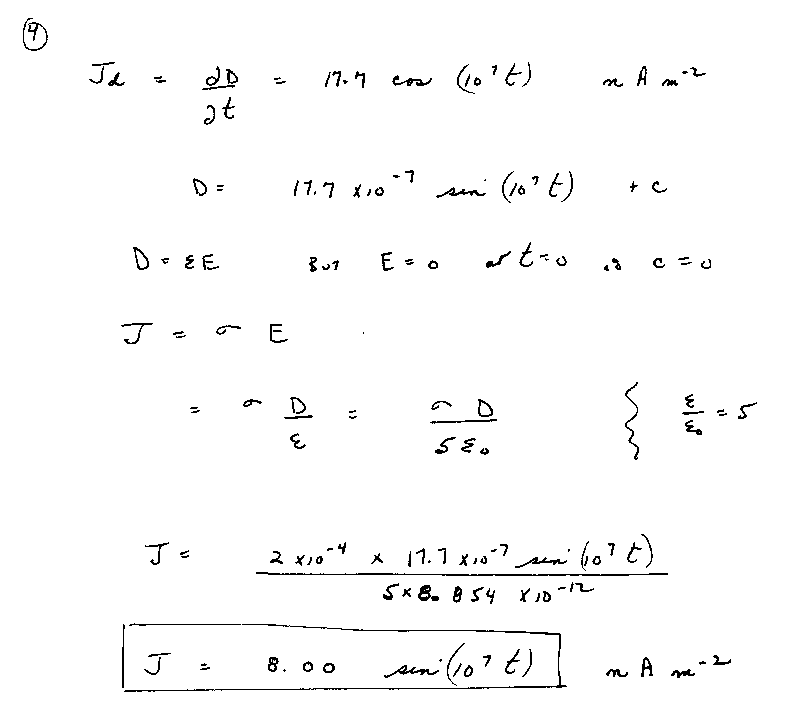 ④
J_d = ∂D/∂t = 17.7 cos (10⁷ t) n A m⁻²
D = 17.7 × 10⁻⁷ sin (10⁷ t) + c
D = εE BUT E = 0 at t = 0 is c = 0
J = σ E
= σ D/ε = σ D/5 ε₀ } ε/ε₀ = 5
J = 2 × 10⁻⁴ × 17.7 × 10⁻⁷ sin (10⁷ t) / 5 × 8.854 × 10⁻¹²
J = 8.00 sin (10⁷ t) n A m⁻²